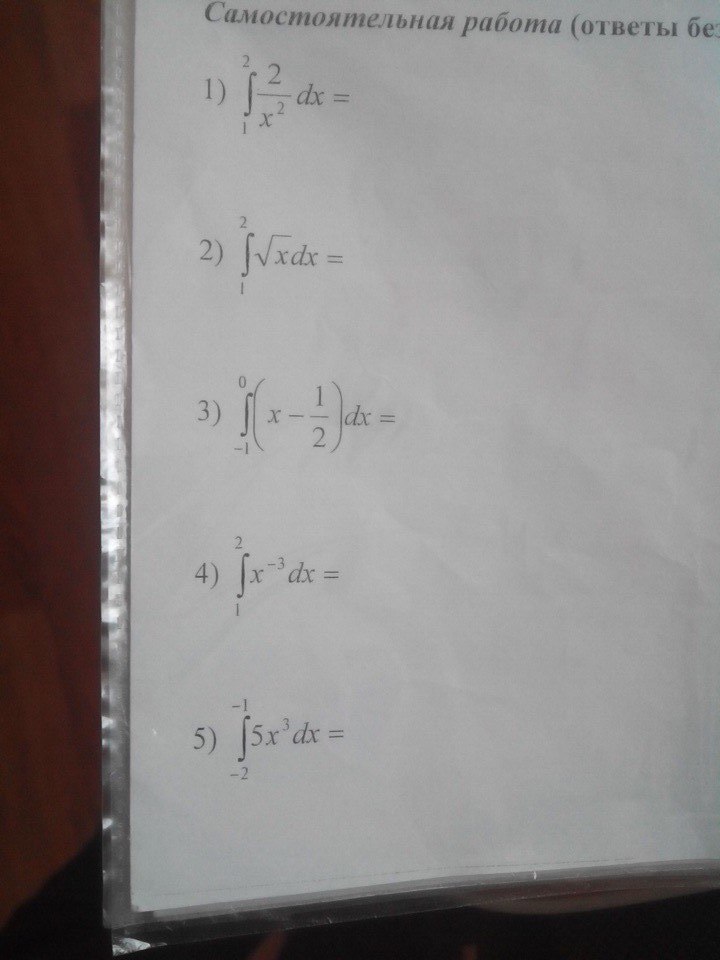 Самостоятельная работа (ответы без
1) ∫₁² 2/x² dx =
2) ∫₁² √x dx =
3) ∫₋₁⁰ (x − 1/2) dx =
4) ∫₁² x⁻³ dx =
5) ∫₋₂⁻¹ 5x³ dx =